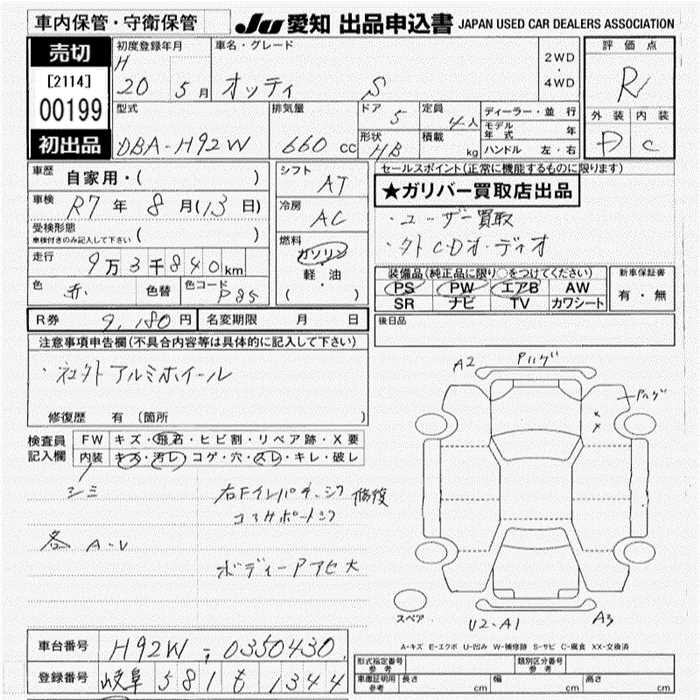 車内保管・守衛保管
JU 愛知 出品申込書 JAPAN USED CAR DEALERS ASSOCIATION
売切
[2114]
00199
初出品
初度登録年月
H 20 5月
車名・グレード
オッティ S
2WD
・
4WD
評価点
R
外装 内装
D C
型式
DBA-H92W
排気量
660 cc
ドア 5
形状 HB
定員 4人
積載 kg
ディーラー・並行
モデル年式 年
ハンドル 左・右
車歴 自家用・( )
車検 R7年 8月(13日)
受検形態
車検付きのみ記入して下さい ( )
走行 9万3千840km
色 赤 色替 色コード P85
シフト AT
冷房 AC
燃料
ガソリン
軽・油
( )
セールスポイント(正常に機能するものに限ります)
★ガリバー買取店出品
・ユーザー買取
・外CDオーディオ
装備品(純正品に限り○をつけてください)
PS PW エアB AW
SR ナビ TV カワシート
新車保証書
有・無
R券 9,180円 名変期限 月 日
後日品
注意事項申告欄(不具合内容等は具体的に記入して下さい)
・社外アルミホイール
修復歴 有 (箇所 )
検査員記入欄
FW キズ・飛石・ヒビ割・リペア跡・X要
内装 キズ・汚レ・コゲ・穴・スレ・キレ・破レ
シミ
各 A・U
右Fインパネ 修復
コアサポート
ボディーアセ大
A2 Pハゲ
Pハゲ
× ×
スペア
U2-A1
A3
A-キズ E-エクボ U-凹み W-補修跡 S-サビ C-腐食 XX-交換済
車台番号 H92W-0350430
登録番号 岐阜 581 も 1344
型式指定番号 参考
類別区分番号 参考
車庫証明用 参考 長さ cm 幅 cm 高さ cm